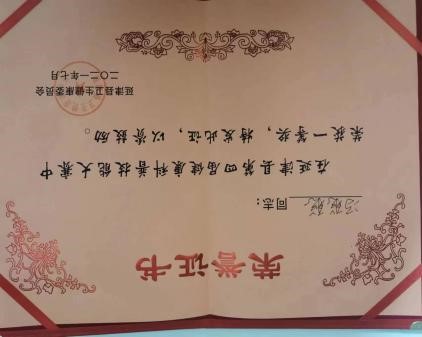 荣誉证书
同志：
在延津县第四届健康科普技能大赛中
荣获一等奖，特发此证，以资鼓励。
延津县卫生健康委员会
二〇二一年七月